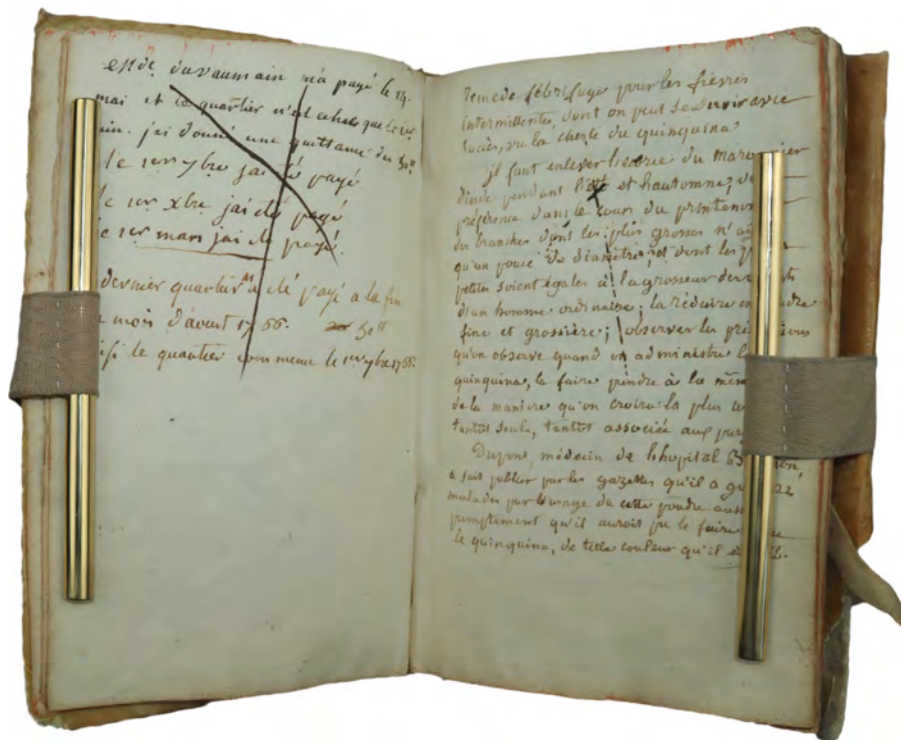 du vaumain m'a payé le 14.
mai et le quartier n'est échu que le ier
juin. j'ai donné une quittance des 30tt
le 1er 7bre j'ai été payé
le 1er xbre j'ai été payé
le 1er mars j'ai été payé
dernier quartier a été payé a la fin
mois d'aoust 1766. 30tt
le quartier commence le 1er 7bre 1766.
Remede fébrifuge pour les fievres
intermittentes, dont on peut se servir avec
succès, vu la cherté du quinquina
il faut enlever l'écorce du maronnier
d'inde pendant l'été et l'automne, de
préférence dans le cours du printems
des branches dont les plus grosses n'aient
qu'un pouce de diamètre, et dont les plus
petites soient égales à la grosseur du doigt
d'un homme ordinaire; la réduire en poudre
fine et grossière; observer les précautions
qu'on observe quand on administre le
quinquina, la faire prendre à la même
de la manière qu'on croira la plus
tantôt seule, tantôt associée aux
Dupont, médecin de l'hopital
a fait publier par les gazettes qu'il a
malades par l'usage de cette poudre aussi
promptement qu'il auroit pu le faire
le quinquina, de telle couleur qu'il